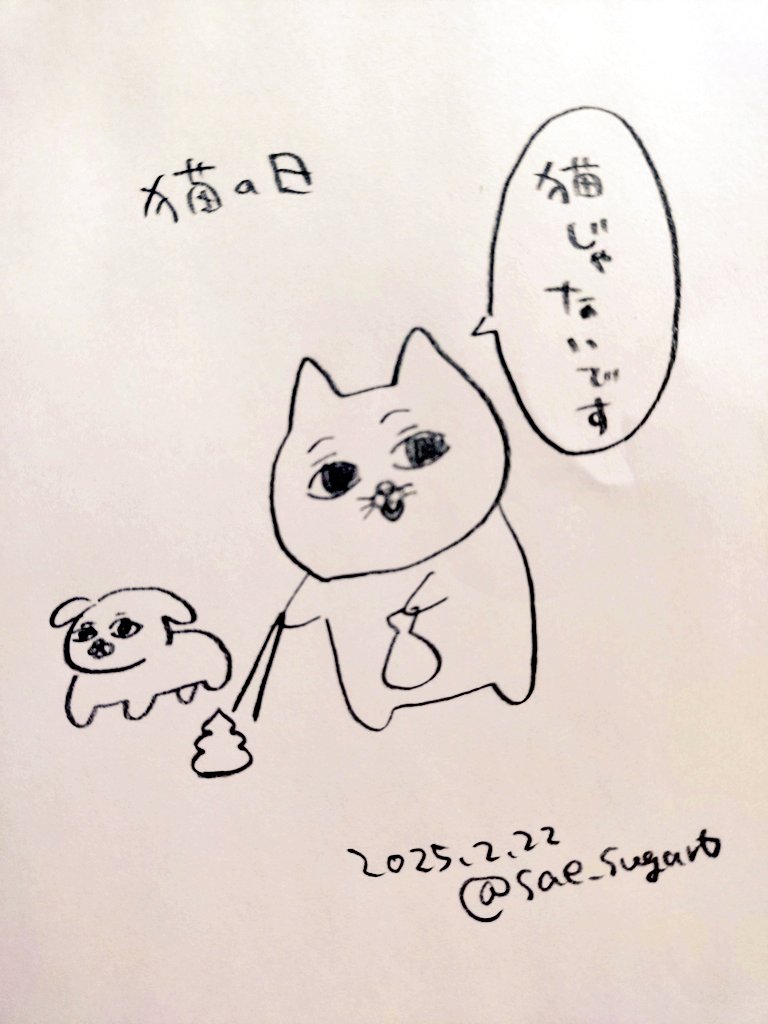 猫の日
猫じゃないです
2025.2.22
@sae_sugar